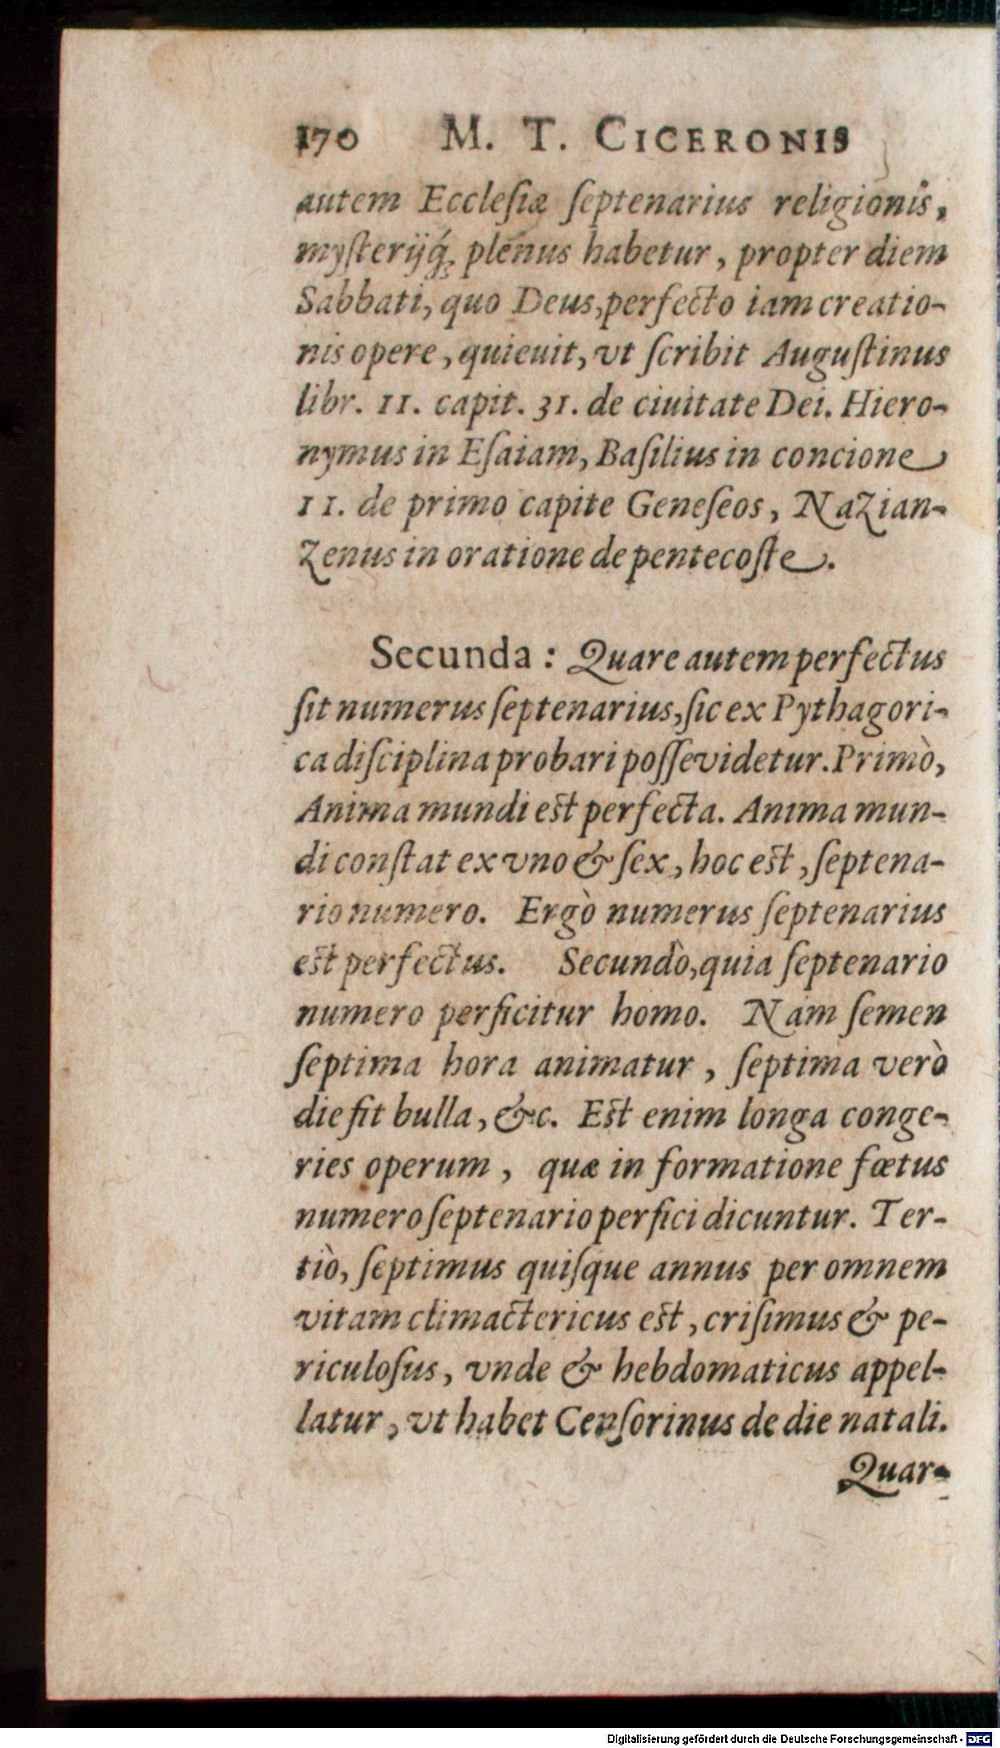 170 M. T. CICERONIS
autem Ecclesiæ ſeptenarius religionis,
myſterijq́; plenus habetur, propter diem
Sabbati, quo Deus, perfecto iam creatio-
nis opere, quieuit, vt ſcribit Auguſtinus
libr. 11. capit. 31. de ciuitate Dei. Hiero-
nymus in Eſaiam, Baſilius in concione
11. de primo capite Geneſeos, Nazian-
zenus in oratione de pentecoſte.
Secunda: Quare autem perfectus
ſit numerus ſeptenarius, ſic ex Pythagori-
ca diſciplina probari poſſe videtur. Primò,
Anima mundi eſt perfecta. Anima mun-
di conſtat ex vno & ſex, hoc eſt, ſeptena-
rio numero. Ergò numerus ſeptenarius
eſt perfectus. Secundò, quia ſeptenario
numero perficitur homo. Nam ſemen
ſeptima hora animatur, ſeptima verò
die fit bulla, &c. Eſt enim longa conge-
ries operum, quæ in formatione fœtus
numero ſeptenario perfici dicuntur. Ter-
tiò, ſeptimus quiſque annus per omnem
vitam climactericus eſt, criſimus & pe-
riculoſus, vnde & hebdomaticus appel-
latur, vt habet Cenſorinus de die natali.
Quar-
Digitalisierung gefördert durch die Deutsche Forschungsgemeinschaft - DFG